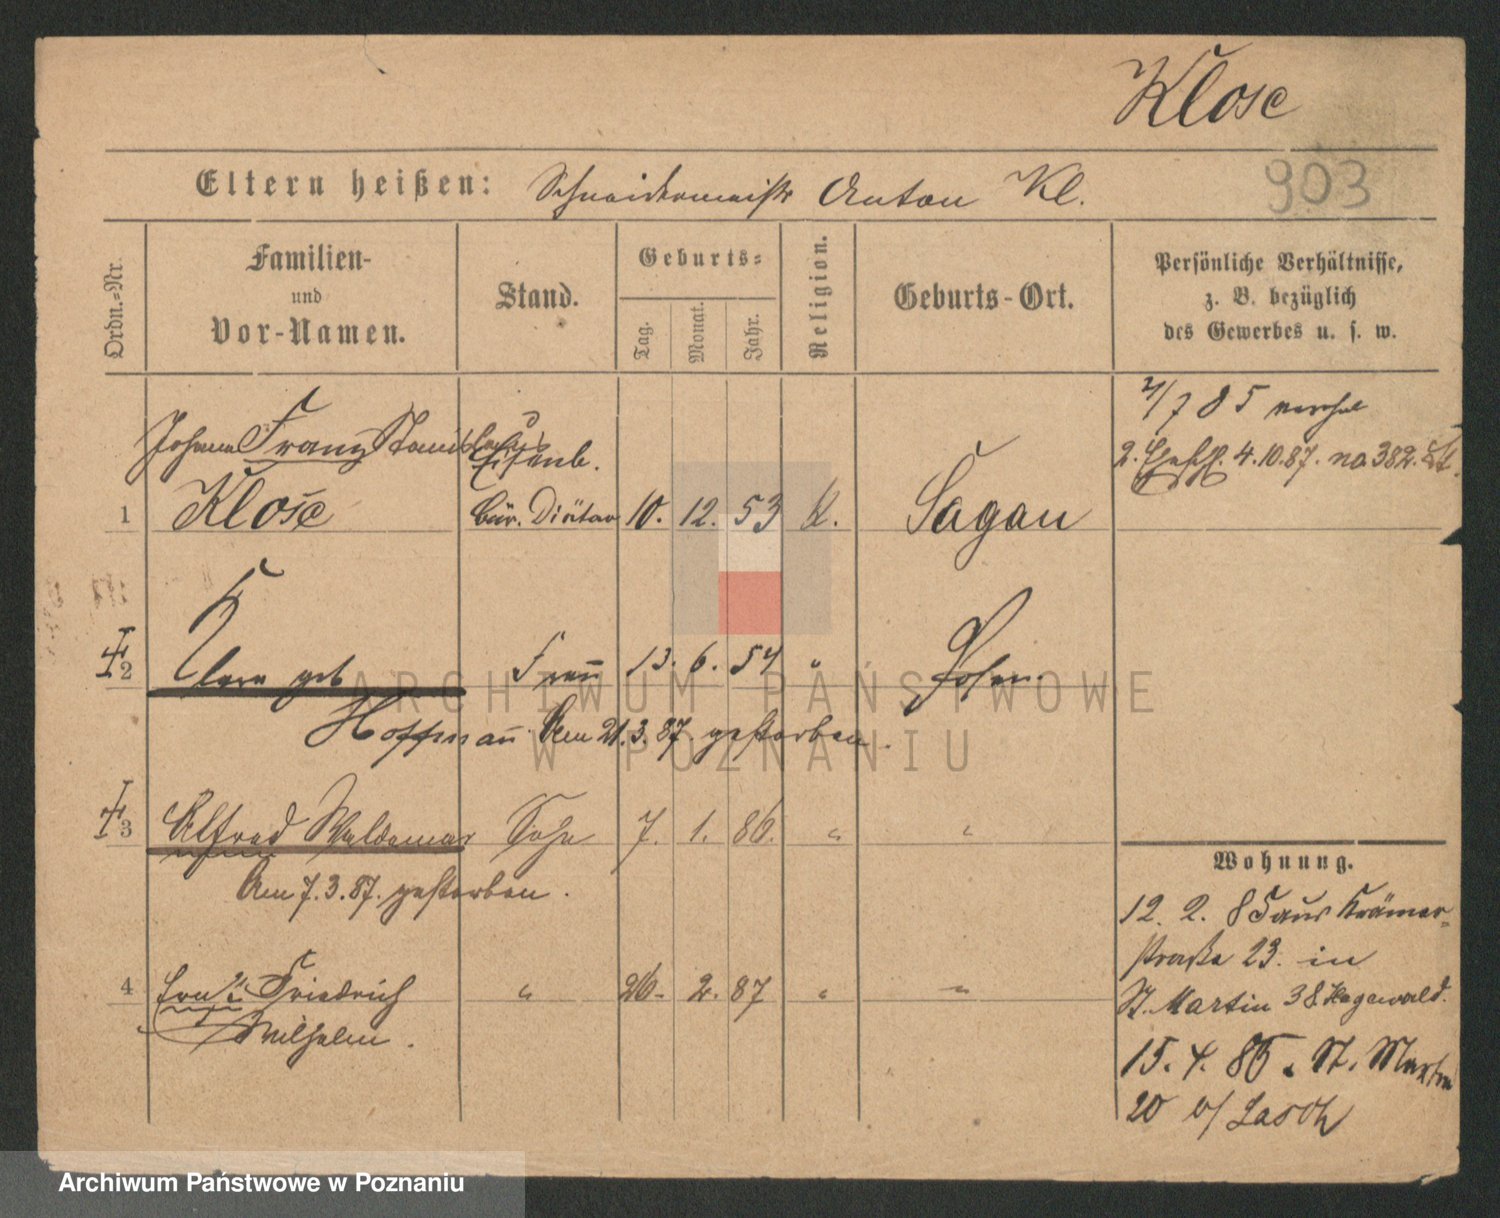 Klose
903
Eltern heißen: Schneidermeistr Anton Kl.
Ordn.=Nr.
Familien-
und
Vor-Namen.
Stand.
Geburts=
Tag.
Monat.
Jahr.
Religion.
Geburts-Ort.
Persönliche Verhältnisse,
z. B. bezüglich
des Gewerbes u. s. w.
Johann Franz Stanislaus Eisenb.
1 Klose Bür. Diätar 10. 12. 53 k. Sagan
4/7 85
2. 4.10.87. no 382.
2 Clara geb Frau 13. 6. 54 " Posen.
Hoffmañ Am 21.3.87 gestorben.
3 Alfred Waldemar Sohn 7. 1. 86. " "
Am 7.3.87. gestorben.
4 Friedrich " 26. 2. 87 " "
Wilhelm.
Wohnung.
12. 2. 85 aus Krämer=
straße 23. in
St. Martin 38 Hagewald.
15. 4. 86. St. Martin
20 b/ Lasch
ARCHIWUM PAŃSTWOWE
W POZNANIU
Archiwum Państwowe w Poznaniu